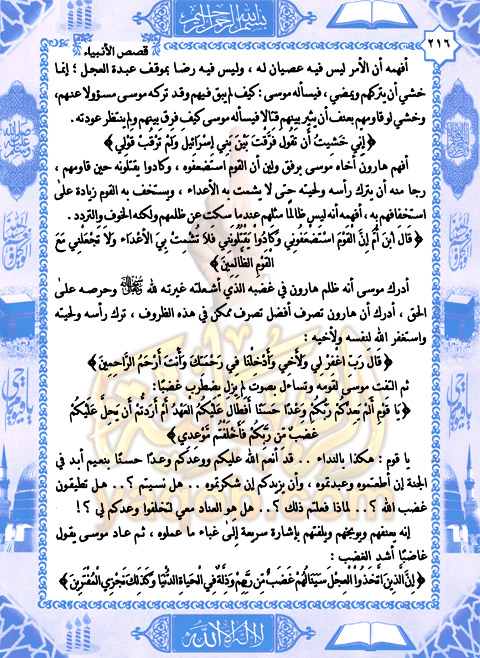 بسم الله الرحمن الرحيم
قصص الأنبياء
٢١٦
أفهمه أن الأمر ليس فيه عصيان له ، وليس فيه رضا بموقف عبدة العجل ؛ إنما
خشي أن يتركهم ويمضي ، فيسأله موسى : كيف لم يبق فيهم وقد تركه موسى مسؤولا عنهم،
وخشي لو قاومهم بعنف أن يثير بينهم قتالا فيسأله موسى كيف فرق بينهم ولم ينتظر عودته .
﴿ إِنِّي خَشِيتُ أَن تَقُولَ فَرَّقْتَ بَيْنَ بَنِي إِسْرَائِيلَ وَلَمْ تَرْقُبْ قَوْلِي ﴾
أفهم هارون أخاه موسى برفق ولين أن القوم استضعفوه ، وكادوا يقتلونه حين قاومهم ،
رجا منه أن يترك رأسه ولحيته حتى لا يشمت به الأعداء ، ويستخف به القوم زيادة على
استخفافهم به ، أفهمه أنه ليس ظالما مثلهم عندما سكت عن ظلمهم ولكنه الخوف والتردد .
﴿ قَالَ ابْنَ أُمَّ إِنَّ الْقَوْمَ اسْتَضْعَفُونِي وَكَادُوا يَقْتُلُونَنِي فَلَا تُشْمِتْ بِيَ الْأَعْدَاءَ وَلَا تَجْعَلْنِي مَعَ
الْقَوْمِ الظَّالِمِينَ ﴾
أدرك موسى أنه ظلم هارون في غضبه الذي أشعلته غيرته لله وحرصه على
الحق ، أدرك أن هارون تصرف أفضل تصرف ممكن في هذه الظروف ، ترك رأسه ولحيته
واستغفر الله لنفسه ولأخيه :
﴿ قَالَ رَبِّ اغْفِرْ لِي وَلِأَخِي وَأَدْخِلْنَا فِي رَحْمَتِكَ وَأَنتَ أَرْحَمُ الرَّاحِمِينَ ﴾
ثم التفت موسى لقومه وتساءل بصوت لم يزل يضطرب غضبا :
﴿ يَا قَوْمِ أَلَمْ يَعِدْكُمْ رَبُّكُمْ وَعْدًا حَسَنًا أَفَطَالَ عَلَيْكُمُ الْعَهْدُ أَمْ أَرَدتُّمْ أَن يَحِلَّ عَلَيْكُمْ
غَضَبٌ مِّن رَّبِّكُمْ فَأَخْلَفْتُم مَّوْعِدِي ﴾
يا قوم : هكذا بالنداء .. قد أنعم الله عليكم ووعدكم وعدًا حسنًا بنعيم أبد في
الجنة إن أطعتموه وعبدتموه ، وأن يزيدكم إن شكرتموه .. هل نسيتم ؟ .. هل تطيقون
غضب الله ؟ .. لماذا فعلتم ذلك ؟ .. هل هو العناد معي لتخلفوا وعدكم لي ؟ !
إنه يعنفهم ويوبخهم ويلفتهم بإشارة سريعة إلى غباء ما عملوه ، ثم عاد موسى يقول
غاضبًا أشد الغضب :
﴿ إِنَّ الَّذِينَ اتَّخَذُوا الْعِجْلَ سَيَنَالُهُمْ غَضَبٌ مِّن رَّبِّهِمْ وَذِلَّةٌ فِي الْحَيَاةِ الدُّنْيَا وَكَذَلِكَ نَجْزِي الْمُفْتَرِينَ ﴾
لا إله إلا الله